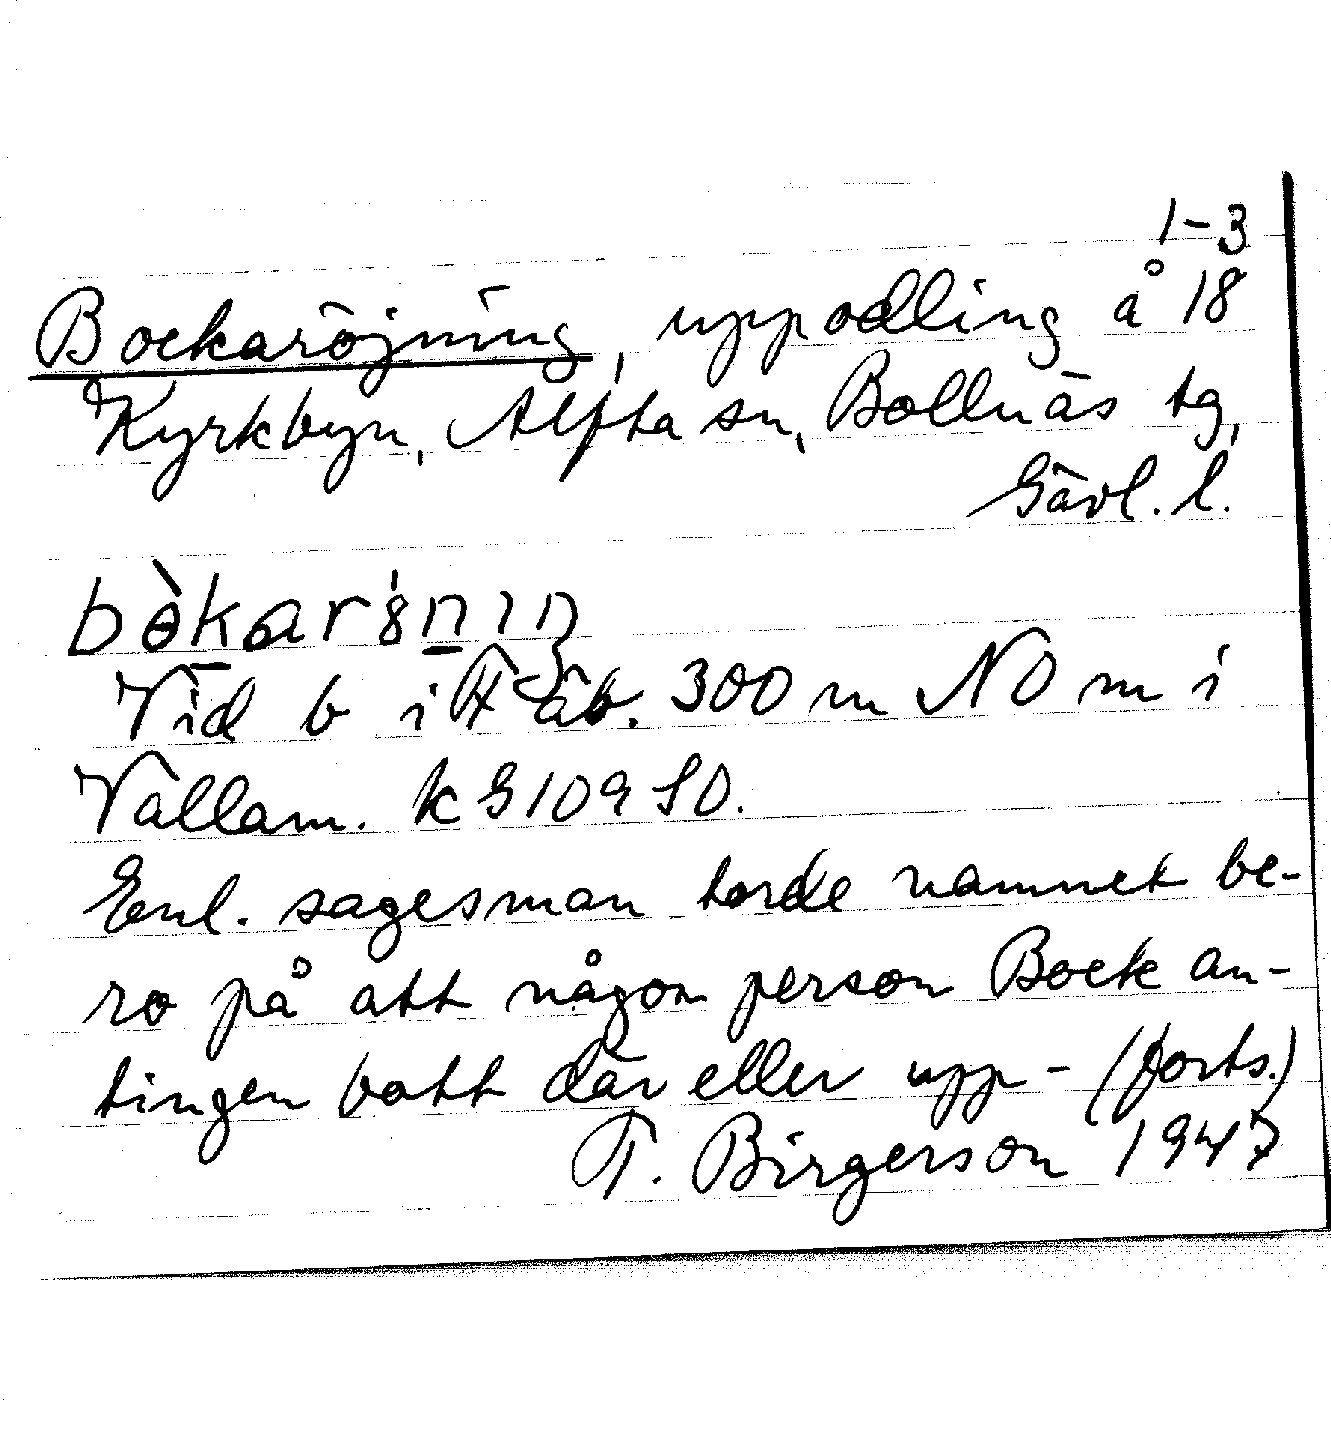 1-3
Bockaröjning, uppodling å 18
Kyrkbyn, Alfta sn, Bollnäs tg,
Gävl. l.
Vid b i Fäb. 300 m NO m i
Vallam. k G 109 SO.
Enl. sagesman torde namnet be-
ro på att någon person Bock an-
tingen bott där eller upp- (forts.)
T. Birgerson 1947